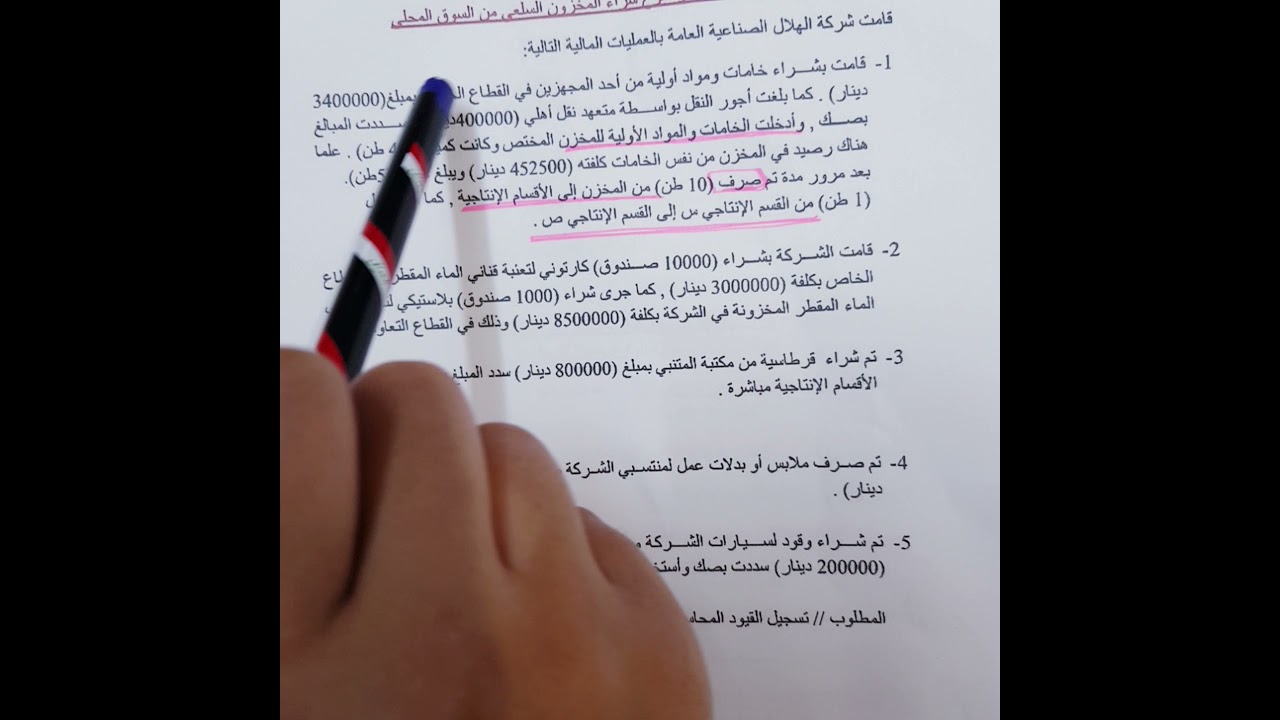 شراء المخزون السلعي من السوق المحلي
قامت شركة الهلال الصناعية العامة بالعمليات المالية التالية:
1- قامت بشراء خامات ومواد أولية من أحد المجهزين في القطاع بمبلغ(3400000
دينار) . كما بلغت أجور النقل بواسطة متعهد نقل أهلي (400000 سددت المبالغ
بصك , وأدخلت الخامات والمواد الأولية للمخزن المختص وكانت طن) . علما
هناك رصيد في المخزن من نفس الخامات كلفته (452500 دينار) ويبلغ 5طن).
بعد مرور مدة تم صرف (10 طن) من المخزن إلى الأقسام الإنتاجية , كما
(1 طن) من القسم الإنتاجي س إلى القسم الإنتاجي ص .
2- قامت الشركة بشراء (10000 صندوق) كارتوني لتعبئة قناني الماء المقطر
الخاص بكلفة (3000000 دينار) , كما جرى شراء (1000 صندوق) بلاستيكي
الماء المقطر المخزونة في الشركة بكلفة (8500000 دينار) وذلك في القطاع
3- تم شراء قرطاسية من مكتبة المتنبي بمبلغ (800000 دينار) سدد المبلغ
الأقسام الإنتاجية مباشرة .
4- تم صرف ملابس أو بدلات عمل لمنتسبي الشركة
دينار) .
5- تم شراء وقود لسيارات الشركة
(200000 دينار) سددت بصك
المطلوب // تسجيل القيود